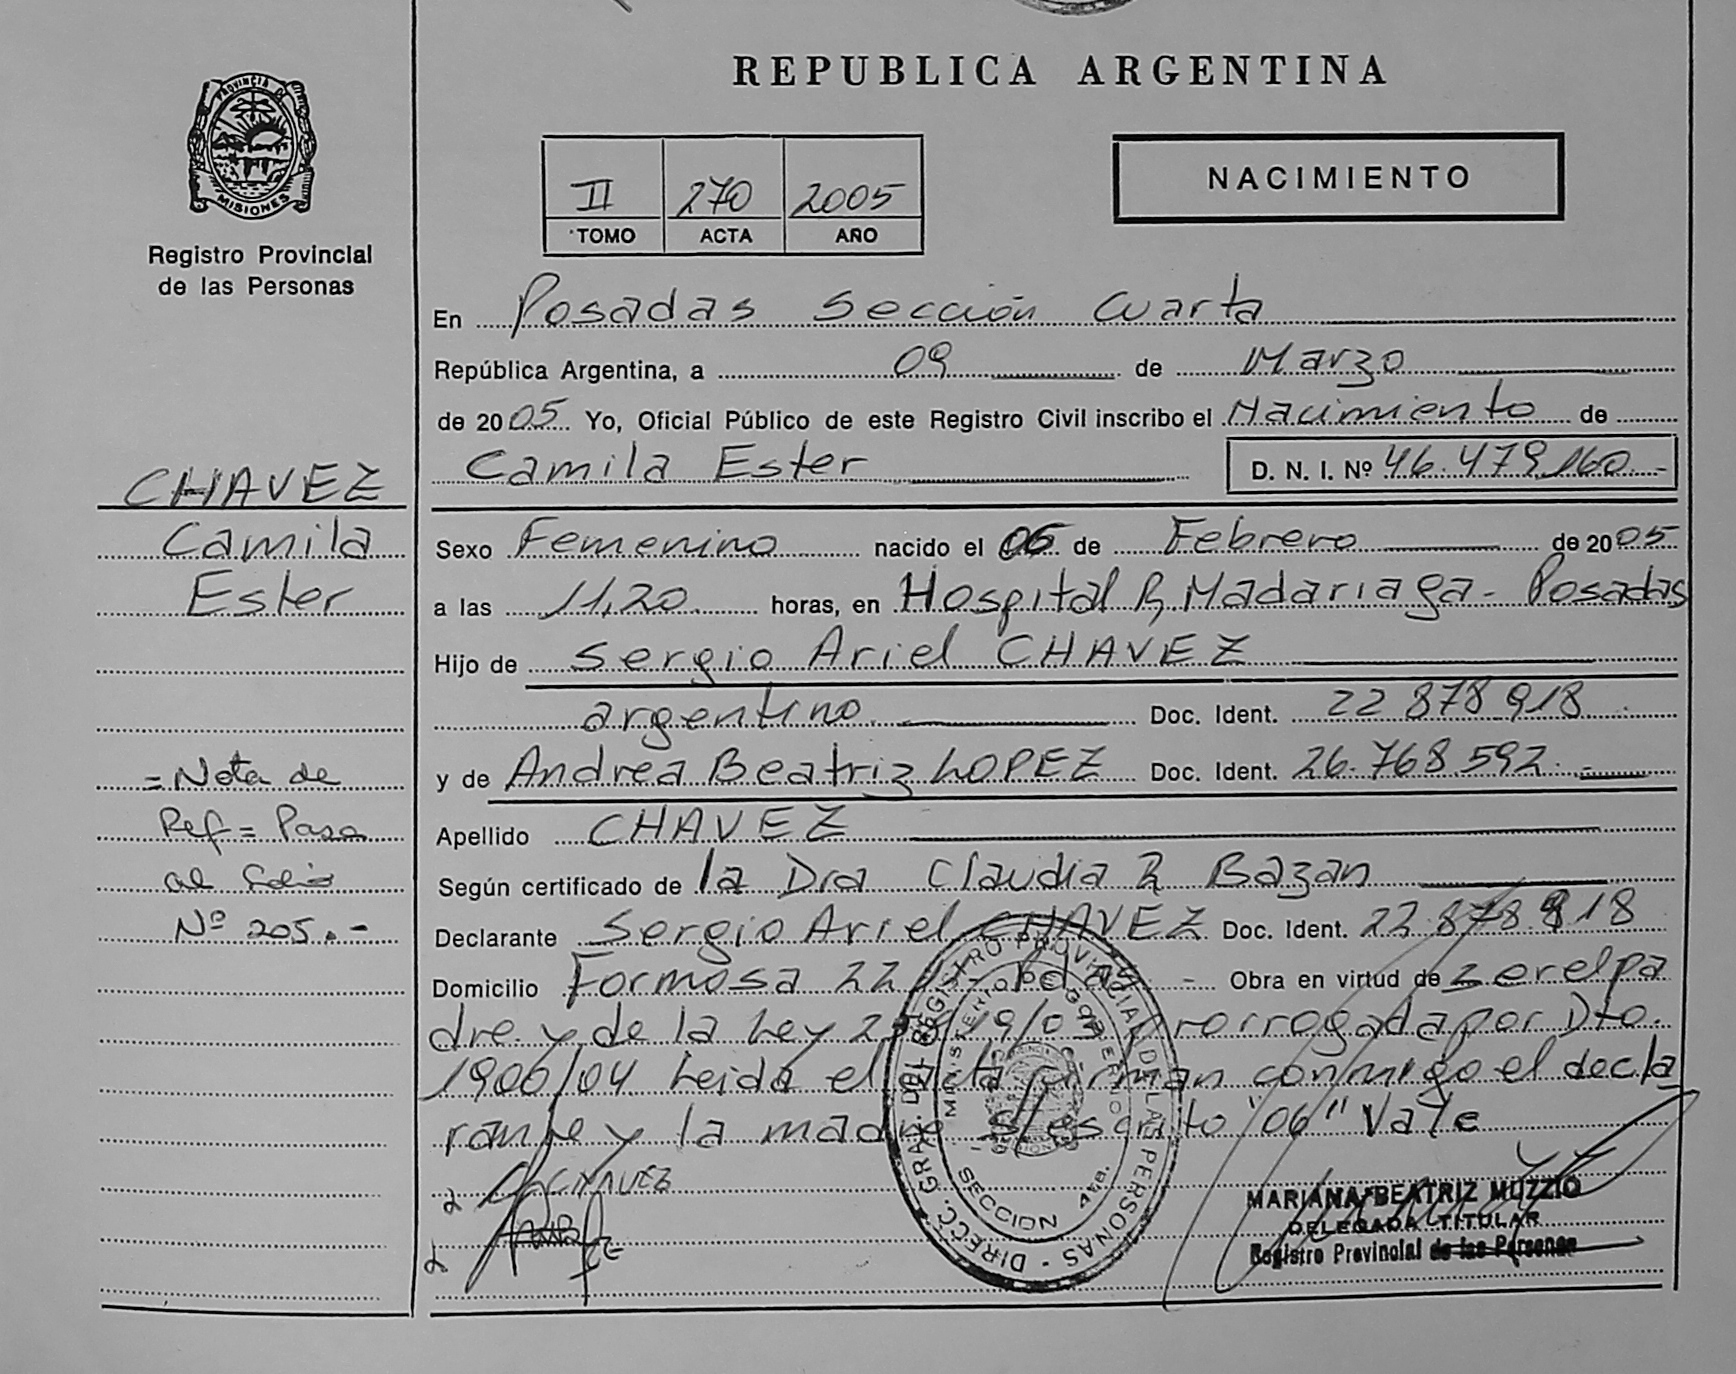 REPUBLICA ARGENTINA
PROVINCIA DE
MISIONES
Registro Provincial
de las Personas
II 270 2005
TOMO ACTA AÑO
NACIMIENTO
En Posadas Sección Cuarta
República Argentina, a 09 de Marzo
de 2005 Yo, Oficial Público de este Registro Civil inscribo el Nacimiento de
Camila Ester D. N. I. Nº 46.479.160 -
CHAVEZ
Camila
Ester
Sexo Femenino nacido el 06 de Febrero de 2005
a las 11,20 horas, en Hospital R, Madariaga - Posadas
Hijo de Sergio Ariel CHAVEZ
argentino Doc. Ident. 22 878 918
y de Andrea Beatriz LOPEZ Doc. Ident. 26.768.592 -
= Nota de
Ref = Pasa
al Folio
Nº 205.-
Apellido CHAVEZ
Según certificado de la Dra Claudia R Bazan
Declarante Sergio Ariel CHAVEZ Doc. Ident. 22.878.918
Domicilio Formosa 22 - Obra en virtud de ser el pa
dre y de la Ley prorrogada por Dto.
1906/04 Leida el acta firman conmigo el decla
rante y la madre s/escrito "06" Vale
CHAVEZ
DIRECC. GRAL. DEL REGISTRO PROVINCIAL DE LAS PERSONAS
MINISTERIO DE GOBIERNO
SECCION 4ta.
MARIANA BEATRIZ MUZZIO
DELEGADA TITULAR
Registro Provincial de las Personas